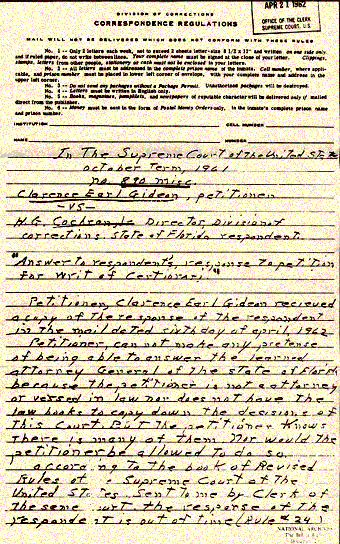 DIVISION OF CORRECTIONS
CORRESPONDENCE REGULATIONS
APR 21 1962
OFFICE OF THE CLERK
SUPREME COURT, U.S.
MAIL WILL NOT BE DELIVERED WHICH DOES NOT CONFORM WITH THESE RULES
No. 1 -- Only 2 letters each week, not to exceed 2 sheets letter-size 8 1/2 x 11" and written on one side only
and if ruled paper, do not write between lines. Your complete name must be signed at the close of your letter. Clippings,
stamps, letters from other people, stationery or cash must not be enclosed in your letters.
No. 2 -- All letters must be addressed in the complete prison name of the inmate. Cell number, where applicable, and prison number must be placed in lower left corner of envelope, with your complete name and address in the
upper left corner.
No. 3 -- Do not send any packages without a Package Permit. Unauthorized packages will be destroyed.
No. 4 -- Letters must be written in English only.
No. 5 -- Books, magazines, pamphlets, and newspapers of reputable character will be delivered only if mailed
direct from the publisher.
No. 6 -- Money must be sent in the form of Postal Money Orders only, in the inmate's complete prison name
and prison number.
INSTITUTION CELL NUMBER
NAME NUMBER
In The Supreme Court of The United States
october Term, 1961
no. 890 Misc.
Clarence Earl Gideon, petitioner
-VS-
H.G. Cochran, Jr. Director, Division of
corrections, State of Florida respondent.
"Answer to respondent's response to petition
for Writ of Certiorari"
Petitioner, Clarence Earl Gideon recieved
a copy of the response of the respondent
in the mail dated sixth day of april, 1962
Petitioner, can not make any pretense
of being able to answer the learned
attorney General of the state of Florida
because the petitioner is not a attorney
or versed in law nor does not have the
law books to copy down the decisions of
this Court. But the petitioner Knows
there is many of them. Nor would the
petitioner be allowed to do so.
according to the book of Revised
Rules of Supreme Court of the
United States Sent to me by Clerk of
the same the response of the
respondent is out of time (Rule #24.)
NATIONAL ARCHIVES